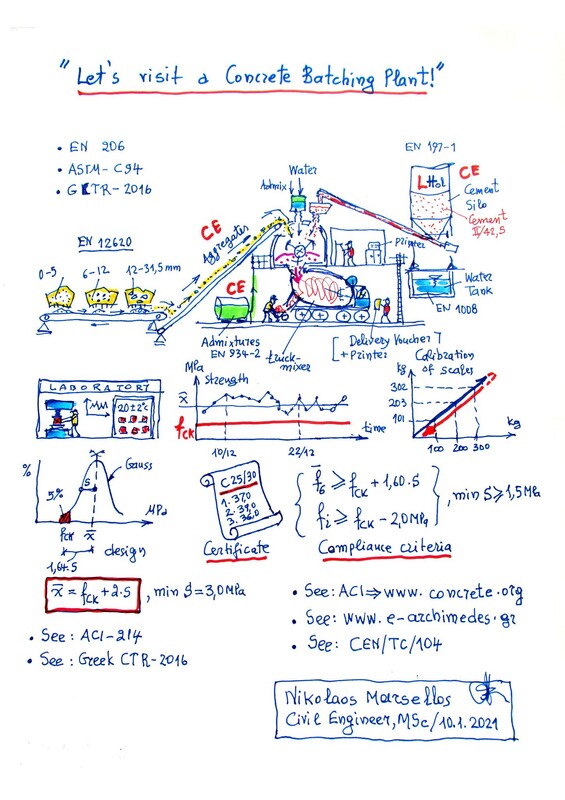 "Let's visit a Concrete Batching Plant!"
• EN 206
• ASTM-C94
• GKTR-2016
EN 197-1
Water
Admix
CE
LHol
CE
Cement
Silo
Cement
II/42,5
Aggregates
EN 12620
0-5
6-12
12-31,5mm
CE
Printer
Water
Tank
EN 1008
Admixtures
EN 934-2
truck-
mixer
[Delivery Voucher]
+ Printer
LABORATORY
20±2°C
MPa
Strength
x̄
fck
time
10/12
22/12
Calibration
of scales
kg
302
203
101
100 200 300
kg
%
Gauss
5%
S
MPa
fck
x̄
1,64.S
design
C25/30
1. 37,0
2. 39,0
3. 36,0
Certificate
f̄6 ≥ fck + 1,60.S
fi ≥ fck - 2,0MPa
, min S ≥ 1,5MPa
Compliance criteria
x̄ = fck + 2.S , min S = 3,0MPa
• See: ACI-214
• See: Greek CTR-2016
• See: ACI ⇒ www.concrete.org
• See: www.e-archimedes.gr
• See: CEN/TC/104
Nikolaos Marsellos
Civil Engineer, MSc/10.1.2021